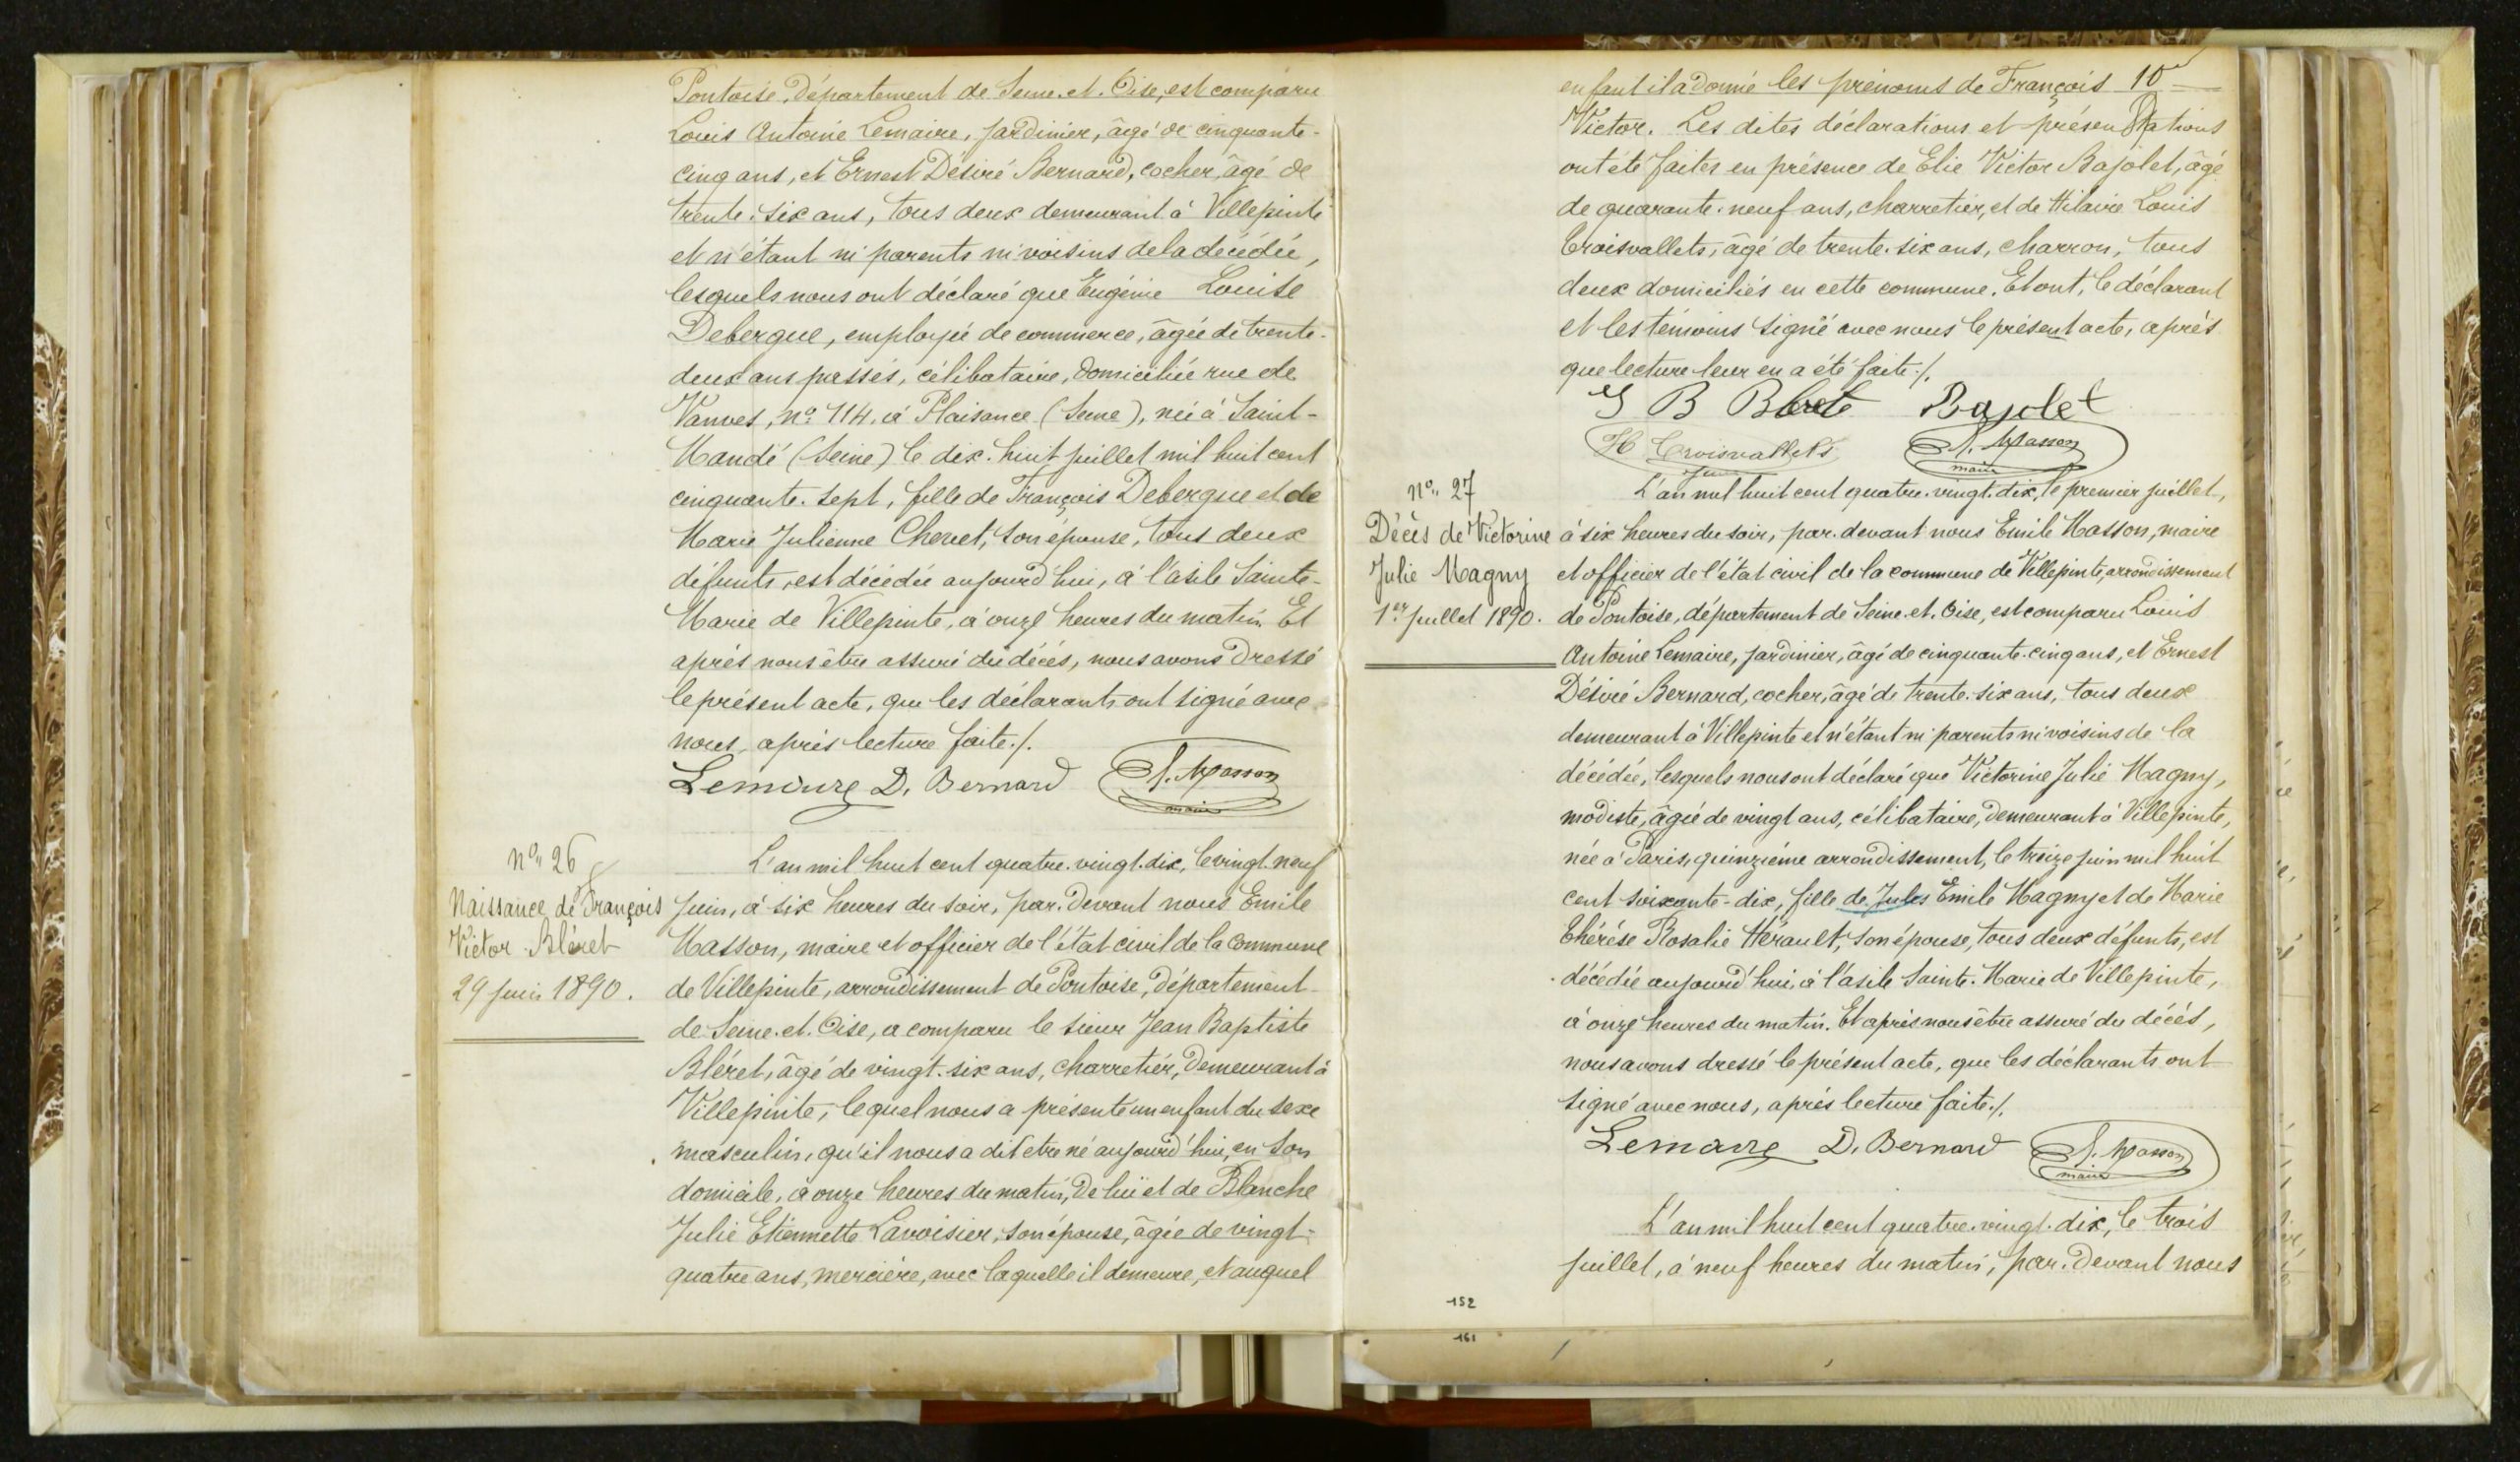 Pontoise, département de Seine-et-Oise, est comparu
Louis Antoine Lemaire, jardinier, âgé de cinquante-
cinq ans, et Ernest Désiré Bernard, cocher, âgé de
trente-six ans, tous deux demeurant à Villepinte
et n'étant ni parents ni voisins de la décédée,
lesquels nous ont déclaré que Eugénie Louise
Debergue, employée de commerce, âgée de trente-
deux ans passés, célibataire, domiciliée rue de
Vanves, no 114, à Plaisance (Seine), née à Saint-
Mandé (Seine) le dix-huit juillet mil huit cent
cinquante-sept, fille de François Debergue et de
Marie Julienne Chevet, son épouse, tous deux
défunts, est décédée aujourd'hui, à l'asile Sainte-
Marie de Villepinte, à onze heures du matin. Et
après nous être assuré du décès, nous avons dressé
le présent acte, que les déclarants ont signé avec
nous, après lecture faite./.
Lemaire D. Bernard E. Masson
maire
no 26
Naissance de François
Victor Bléret
29 juin 1890.
L'an mil huit cent quatre-vingt-dix, le vingt-neuf
juin, à six heures du soir, par-devant nous Emile
Masson, maire et officier de l'état civil de la commune
de Villepinte, arrondissement de Pontoise, département
de Seine-et-Oise, a comparu le sieur Jean Baptiste
Bléret, âgé de vingt-six ans, charretier, demeurant à
Villepinte, lequel nous a présenté un enfant du sexe
masculin, qu'il nous a dit etre né aujourd'hui, en son
domicile, à onze heures du matin, de lui et de Blanche
Julie Etiennette Lavoisier, son épouse, âgée de vingt-
quatre ans, mercière, avec laquelle il demeure, et auquel
enfant il a donné les prénoms de François 10
Victor. Les dites déclarations et présentations
ont été faites en présence de Elie Victor Bajolet, âgé
de quarante-neuf ans, charretier, et de Hilaire Louis
Croisvallets, âgé de trente-six ans, charron, tous
deux domiciliés en cette commune. Et ont, le déclarant
et les témoins signé avec nous le présent acte, après
que lecture leur en a été faite./.
J B Bleret Bajolet
H Croisvallets E. Masson
maire
no 27
Décès de Victorine
Julie Magny
1er juillet 1890.
L'an mil huit cent quatre-vingt-dix, le premier juillet,
à six heures du soir, par-devant nous Emile Masson, maire
et officier de l'état civil de la commune de Villepinte, arrondissement
de Pontoise, département de Seine-et-Oise, est comparu Louis
Antoine Lemaire, jardinier, âgé de cinquante-cinq ans, et Ernest
Désiré Bernard, cocher, âgé de trente-six ans, tous deux
demeurant à Villepinte et n'étant ni parents ni voisins de la
décédée, lesquels nous ont déclaré que Victorine Julie Magny,
modiste, âgée de vingt ans, célibataire, demeurant à Villepinte,
née à Paris, quinzième arrondissement, le treize juin mil huit
cent soixante-dix, fille de Jules Emile Magny et de Marie
Thérèse Rosalie Hérault, son épouse, tous deux défunts, est
décédée aujourd'hui, à l'asile Sainte-Marie de Villepinte,
à onze heures du matin. Et après nous être assuré du décès,
nous avons dressé le présent acte, que les déclarants ont
signé avec nous, après lecture faite./.
Lemaire D. Bernard E. Masson
maire
L'an mil huit cent quatre-vingt-dix, le trois
juillet, à neuf heures du matin, par-devant nous
152
161